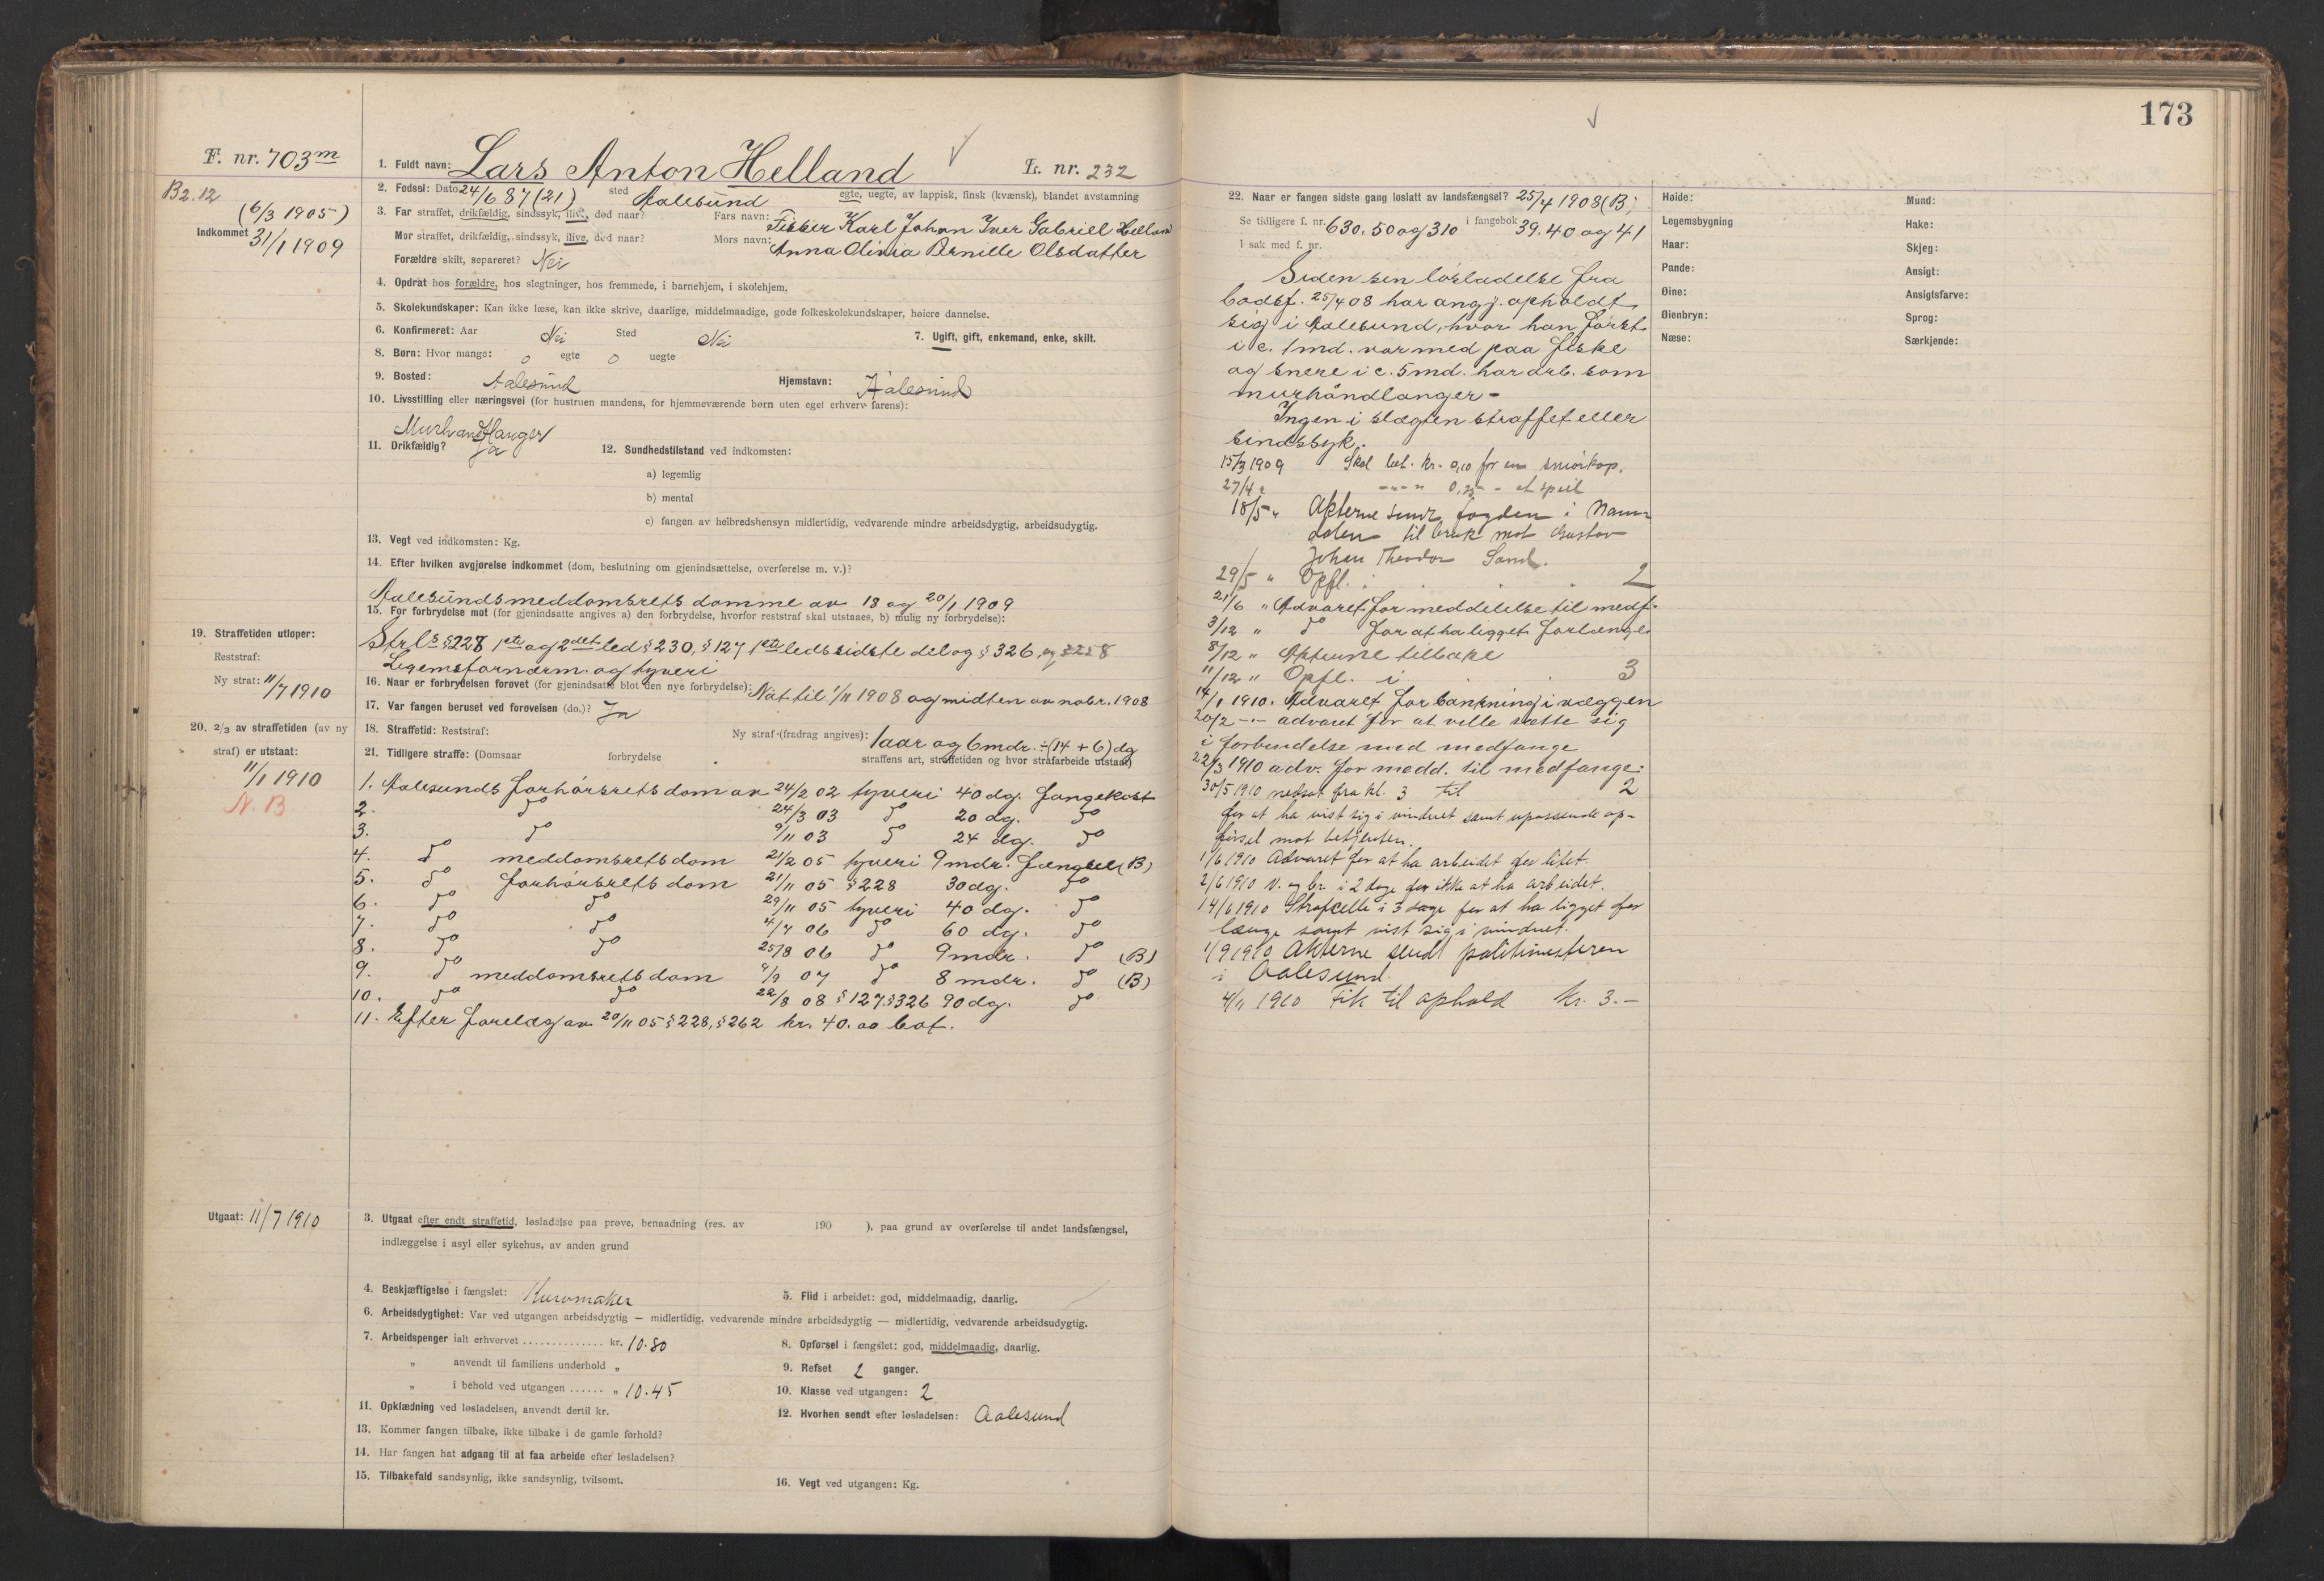 173
F. nr. 703m
1. Fuldt navn: Lars Anton Helland
L. nr. 232
B2.12
(6/3 1905)
Indkommet 31/1 1909
2. Fødsel: Dato 24/6 87 (21) sted Aalesund egte, uegte, av lappisk, finsk (kvænsk), blandet avstamning
3. Far straffet, drikfældig, sindssyk, ilive, død naar? Fars navn: Fisker Karl Johan Iver Gabriel Helland
Mor straffet, drikfældig, sindssyk, ilive, død naar? Mors navn: Anna Olivia Pernille Olsdatter
Forældre skilt, separeret? Nei
4. Opdrat hos forældre, hos slegtninger, hos fremmede, i barnehjem, i skolehjem.
5. Skolekundskaper: Kan ikke læse, kan ikke skrive, daarlige, middelmaadige, gode folkeskolekundskaper, høiere dannelse.
6. Konfirmeret: Aar Nei Sted Nei 7. Ugift, gift, enkemand, enke, skilt.
8. Børn: Hvor mange: 0 egte 0 uegte
9. Bosted: Aalesund Hjemstavn: Aalesund
10. Livsstilling eller næringsvei (for hustruen mandens, for hjemmeværende børn uten eget erhverv farens):
Murhandtlanger
11. Drikfældig? Ja 12. Sundhedstilstand ved indkomsten:
a) legemlig
b) mental
c) fangen av helbredshensyn midlertidig, vedvarende mindre arbeidsdygtig, arbeidsudygtig.
13. Vegt ved indkomsten: Kg.
14. Efter hvilken avgjørelse indkommet (dom, beslutning om gjenindsættelse, overførelse m. v.)?
Aalesunds meddomsrets domme av 18 og 20/1 1909
15. For forbrydelse mot (for gjenindsatte angives a) den forbrydelse, hvorfor reststraf skal utstaaes, b) mulig ny forbrydelse):
Strl's §228 1ste og 2det led §230, §127 1ste leds sidste del og §326, og §258
Legemsfornærm. og tyveri
16. Naar er forbrydelsen forøvet (for gjenindsatte blot den nye forbrydelse): Nat til 1/11 1908 og midten av novbr. 1908
17. Var fangen beruset ved forøvelsen (do.)? Ja
18. Straffetid: Reststraf: Ny straf (fradrag angives): 1 aar og 6 mdr. ÷ (14 + 6) dg
19. Straffetiden utløper:
Reststraf:
Ny straf: 11/7 1910
20. 2/3 av straffetiden (av ny
straf) er utstaat:
11/1 1910
N. B
21. Tidligere straffe: (Domsaar forbrydelse straffens art, straffetiden og hvor strafarbeide utstaat)
1. Aalesunds forhørsrets dom av 24/2 02 tyveri 40 dg. fangekost
2. do 24/3 03 do 20 dg. do
3. do 9/11 03 do 24 dg. do
4. do meddomsrets dom 21/2 05 tyveri 9 mdr. fængsel (B)
5. do forhørsrets dom 21/11 05 §228 30 dg. do
6. do do 29/11 05 tyveri 40 dg. do
7. do do 4/7 06 do 60 dg. do
8. do do 25/8 06 do 9 mdr. do (B)
9. do meddomsrets dom 4/9 07 do 8 mdr. do (B)
10. do do 22/8 08 §127 §326 90 dg. do
11. Efter forelæg av 20/11 05 §228, §262 kr. 40.00 bot.
Utgaat: 11/7 1910
3. Utgaat efter endt straffetid, løsladelse paa prøve, benaadning (res. av 190 ), paa grund av overførelse til andet landsfængsel,
indlæggelse i asyl eller sykehus, av anden grund
4. Beskjæftigelse i fængslet: Kurvmaker 5. Flid i arbeidet: god, middelmaadig, daarlig.
6. Arbeidsdygtighet: Var ved utgangen arbeidsdygtig — midlertidig, vedvarende mindre arbeidsdygtig — midlertidig, vedvarende arbeidsudygtig.
7. Arbeidspenger ialt erhvervet .............. kr. 10.80 8. Opførsel i fængslet: god, middelmaadig, daarlig.
" anvendt til familiens underhold " 9. Refset 2 ganger.
" i behold ved utgangen ...... " 10.45 10. Klasse ved utgangen: 2
11. Opklædning ved løsladelsen, anvendt dertil kr. 12. Hvorhen sendt efter løsladelsen: Aalesund
13. Kommer fangen tilbake, ikke tilbake i de gamle forhold?
14. Har fangen hat adgang til at faa arbeide efter løsladelsen?
15. Tilbakefald sandsynlig, ikke sandsynlig, tvilsomt. 16. Vegt ved utgangen: Kg.
22. Naar er fangen sidste gang løslatt av landsfængsel? 25/4 1908 (B)
Se tidligere f. nr. 630. 50 og 310 i fangebok 39. 40 og 41
I sak med f. nr.
Siden sin løsladelse fra
bodsf. 25/4 08 har angj. opholdt
sig i Aalesund, hvor han først
i c. 1 md. var med paa fiske
og senere i c. 5 md. har arb. som
murhåndlanger -
Ingen i slægten straffet eller
sindssyk.
15/3 1909 Skal bet. kr. 0,10 for en smørkop.
27/4 " " " 0,25 - et speil
18/5 " Akterne sendt fogden i Nam-
dalen til bruk mot Gustav
Johan Theodor Sand.
29/5 " Opfl. i . . . 2
21/6 " Advaret for meddelelse til medf.
3/12 " do for at ha ligget forlænge
8/12 " Akterne tilbake
11/12 " Opfl. i . . 3
14/1 1910. Advaret for bankning i væggen
20/2 - - advaret for at ville sætte sig
i forbindelse med medfange
22/3 1910 adv. for medd. til medfange.
30/5 1910 nedsat fra kl. 3 til 2
for at ha vist sig i vinduet samt upassende op-
førsel mot betjenten.
1/6 1910 Advaret for at ha arbeidet for litet.
2/6 1910 V. og br. i 2 dage for ikke at ha arbeidet.
14/6 1910 Strafcelle i 3 dage for at ha ligget for
længe samt vist sig i vinduet.
1/9 1910 Akterne sendt politimesteren
i Aalesund.
4/11 1910 Fik til ophold kr. 3.—
Høide:
Legemsbygning
Haar:
Pande:
Øine:
Øienbryn:
Næse:
Mund:
Hake:
Skjeg:
Ansigt:
Ansigtsfarve:
Sprog:
Særkjende: